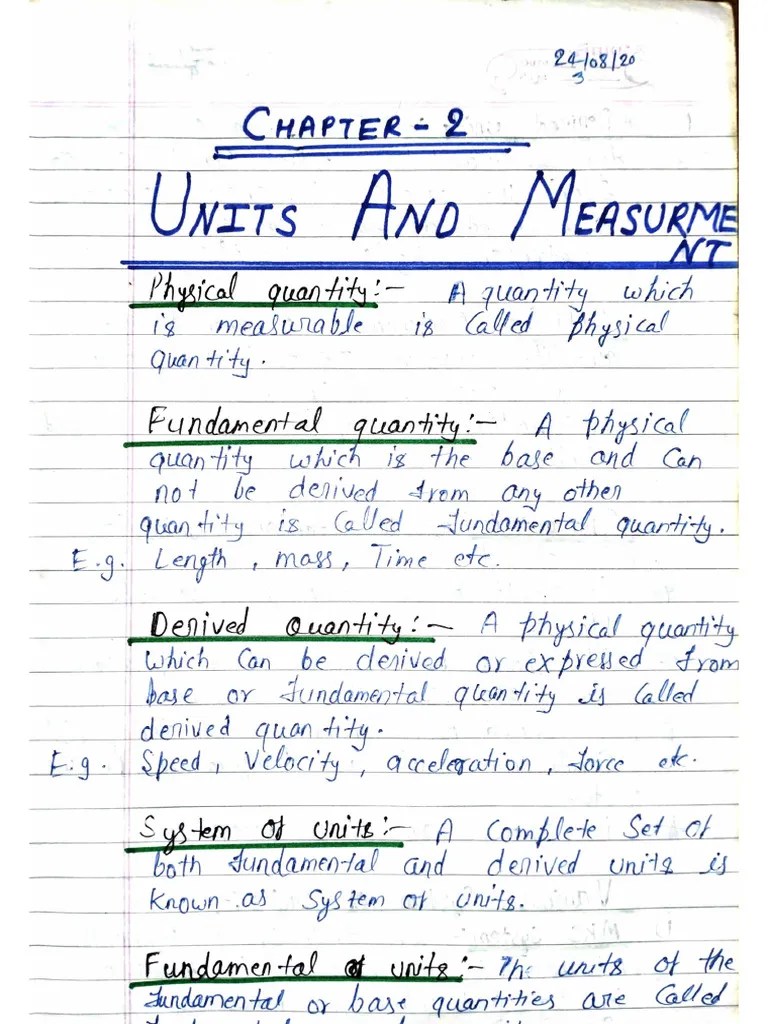 24/08/20
3
CHAPTER - 2
UNITS AND MEASURME
NT
Physical quantity:- A quantity which
is measurable is called physical
quantity.
Fundamental quantity:- A physical
quantity which is the base and can
not be derived from any other
quantity is called fundamental quantity.
E.g. Length, mass, Time etc.
Derived Quantity:- A physical quantity
which can be derived or expressed from
base or fundamental quantity is called
derived quantity.
E.g. Speed, Velocity, acceleration, force etc.
System of units:- A complete set of
both fundamental and derived units is
known as system of units.
Fundamental units:- The units of the
fundamental or base quantities are called